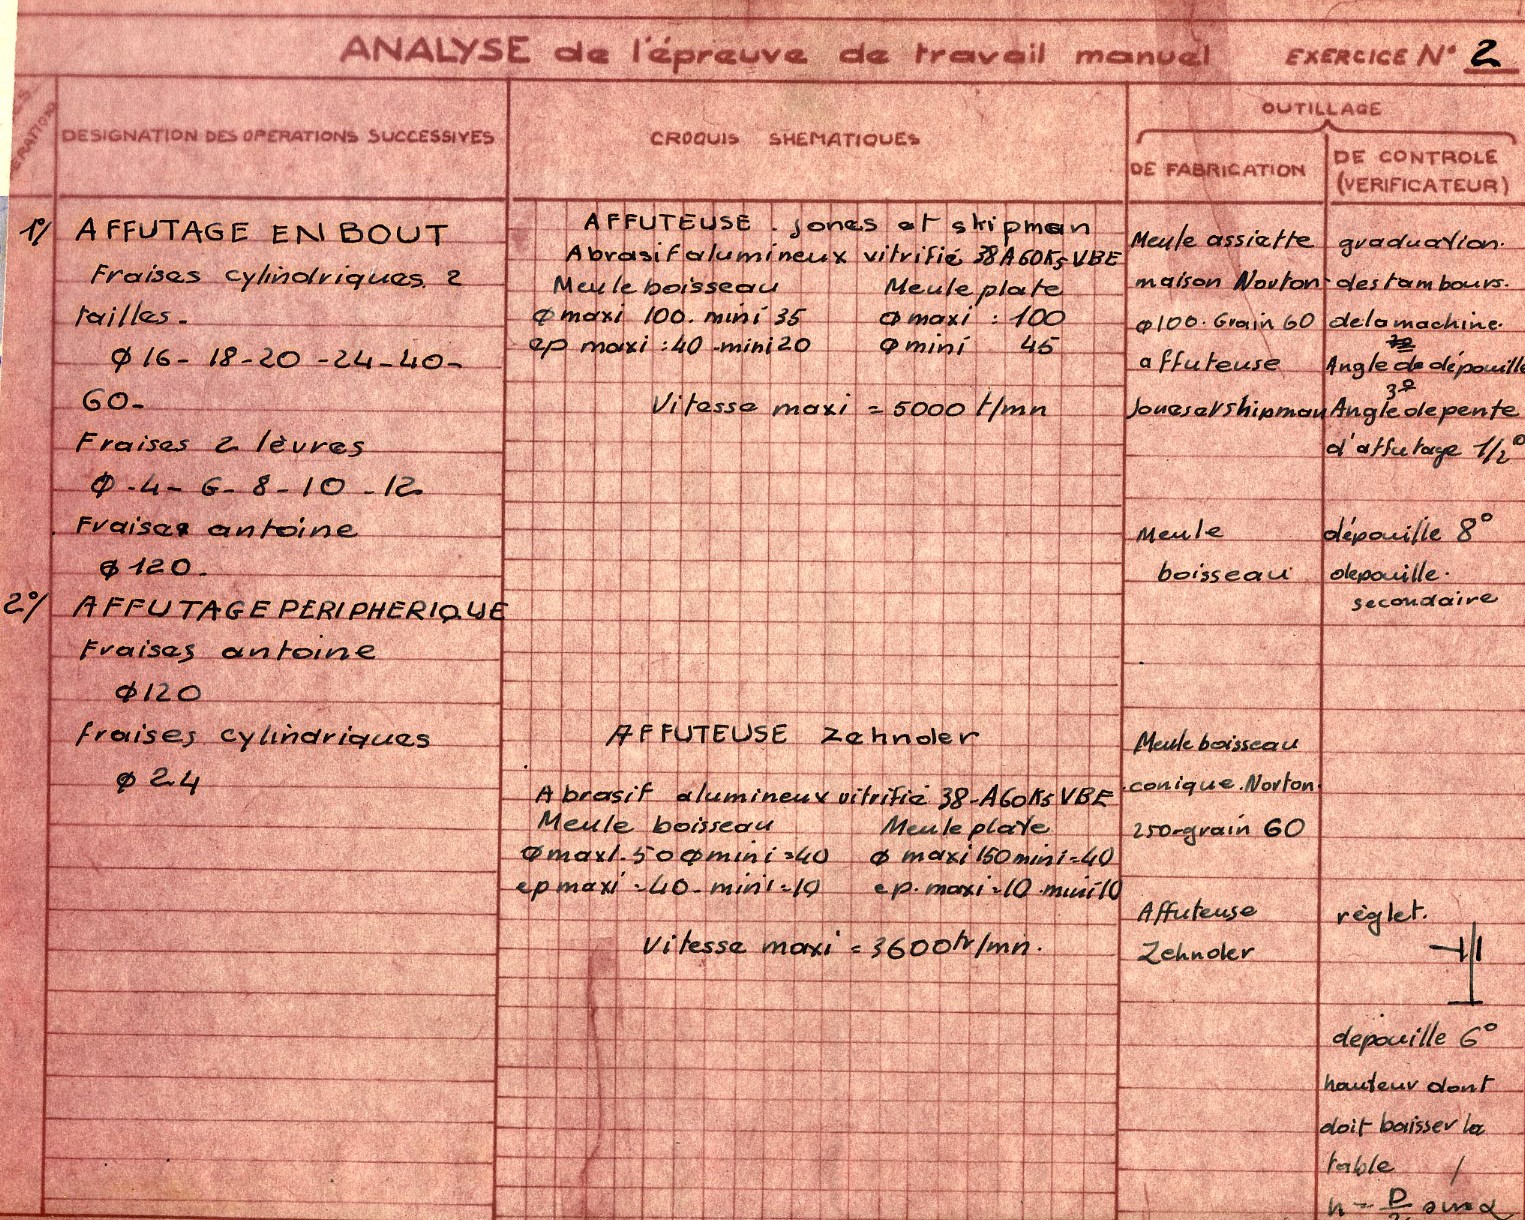 ANALYSE de l'épreuve de travail manuel EXERCICE N° 2
DESIGNATION DES OPERATIONS SUCCESSIVES
CROQUIS SHEMATIQUES
OUTILLAGE
DE FABRICATION
DE CONTROLE
(VERIFICATEUR)
1°/ AFFUTAGE EN BOUT
Fraises cylindriques 2
tailles.
φ 16 - 18 - 20 - 24 - 40 -
60 -
Fraises 2 lèvres
φ - 4 - 6 - 8 - 10 - 12
Fraises antoine
φ 120.
2°/ AFFUTAGE PERIPHERIQUE
Fraises antoine
φ 120
fraises cylindriques
φ 24
AFFUTEUSE . jones et shipman
Abrasif alumineux vitrifié 38A60K5 VBE
Meule boisseau Meule plate
φ maxi 100. mini 35 φ maxi : 100
ep maxi : 40 - mini 20 φ mini 45
Vitesse maxi = 5000 t/mn
AFFUTEUSE Zehnder
Abrasif alumineux vitrifié 38-A60K5 VBE
Meule boisseau Meule plate
φ maxi. 50 φ mini = 40 φ maxi 150 mini = 40
ep maxi = 40 - mini = 10 ep. maxi = 10 . mini 10
Vitesse maxi = 3600 tr/mn.
Meule assiette
maison Norton
φ 100. Grain 60
affuteuse
Jones et shipman
Meule
boisseau
Meule boisseau
conique. Norton.
250-grain 60
Affuteuse
Zehnder
graduation.
des tambours.
de la machine.
Angle de dépouille
3°
Angle de pente
d'affutage 1/2°
dépouille 8°
depouille.
secondaire
règlet.
depouille 6°
hauteur dont
doit baisser la
table
h = D